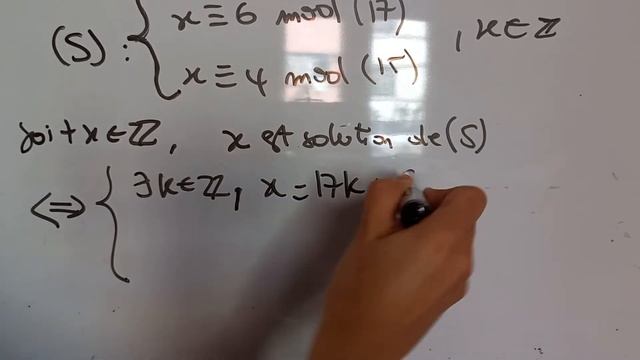 x ≡ 6 mod (17)
(S) : { , x ∈ ℤ
x ≡ 4 mod (15)
soit x ∈ ℤ, x est solution de (S)
⟺ { ∃ k ∈ ℤ, x = 17k